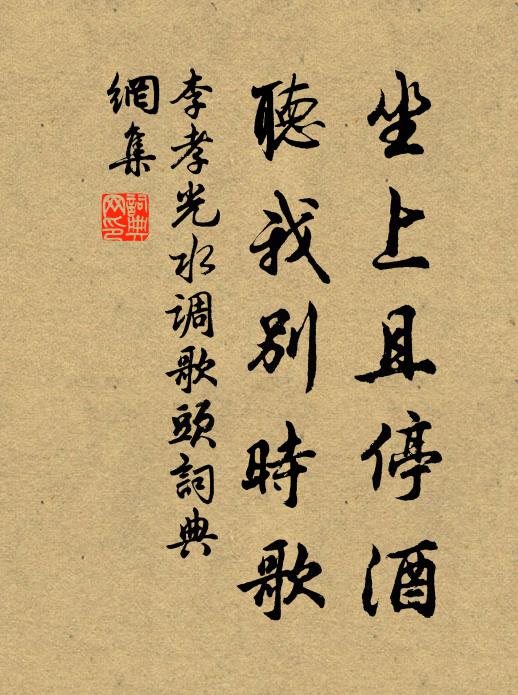 坐上且停酒
聽我別時歌
李孝光水调歌頭詞典
網集
詞典
网印